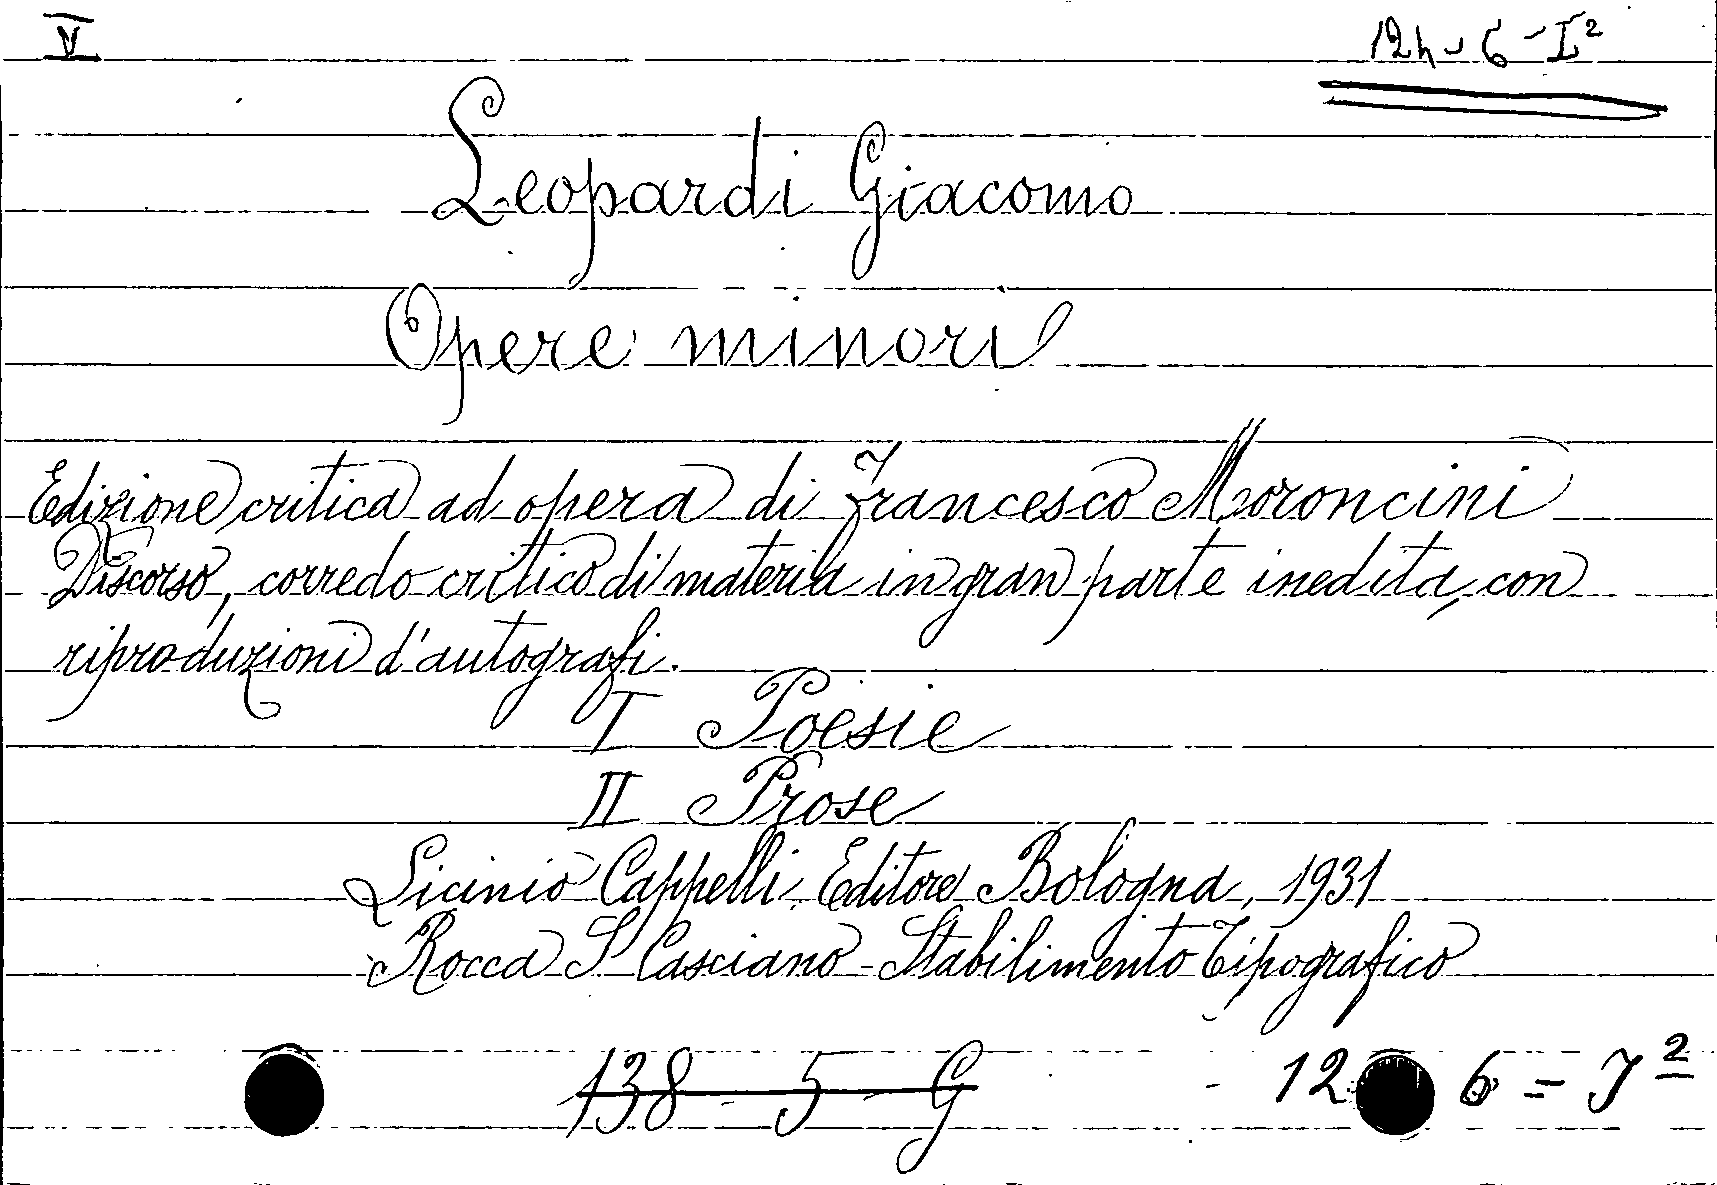 V
124-6-I²
Leopardi Giacomo
Opere minori
Edizione critica ad opera di Francesco Moroncini
Discorso, corredo critico di materia in gran parte inedita, con
riproduzioni d'autografi.
I Poesie
II Prose
Licinio Cappelli, Editore Bologna, 1931
Rocca S Casciano - Stabilimento Tipografico
138 - 5 - G
12 6 = I²